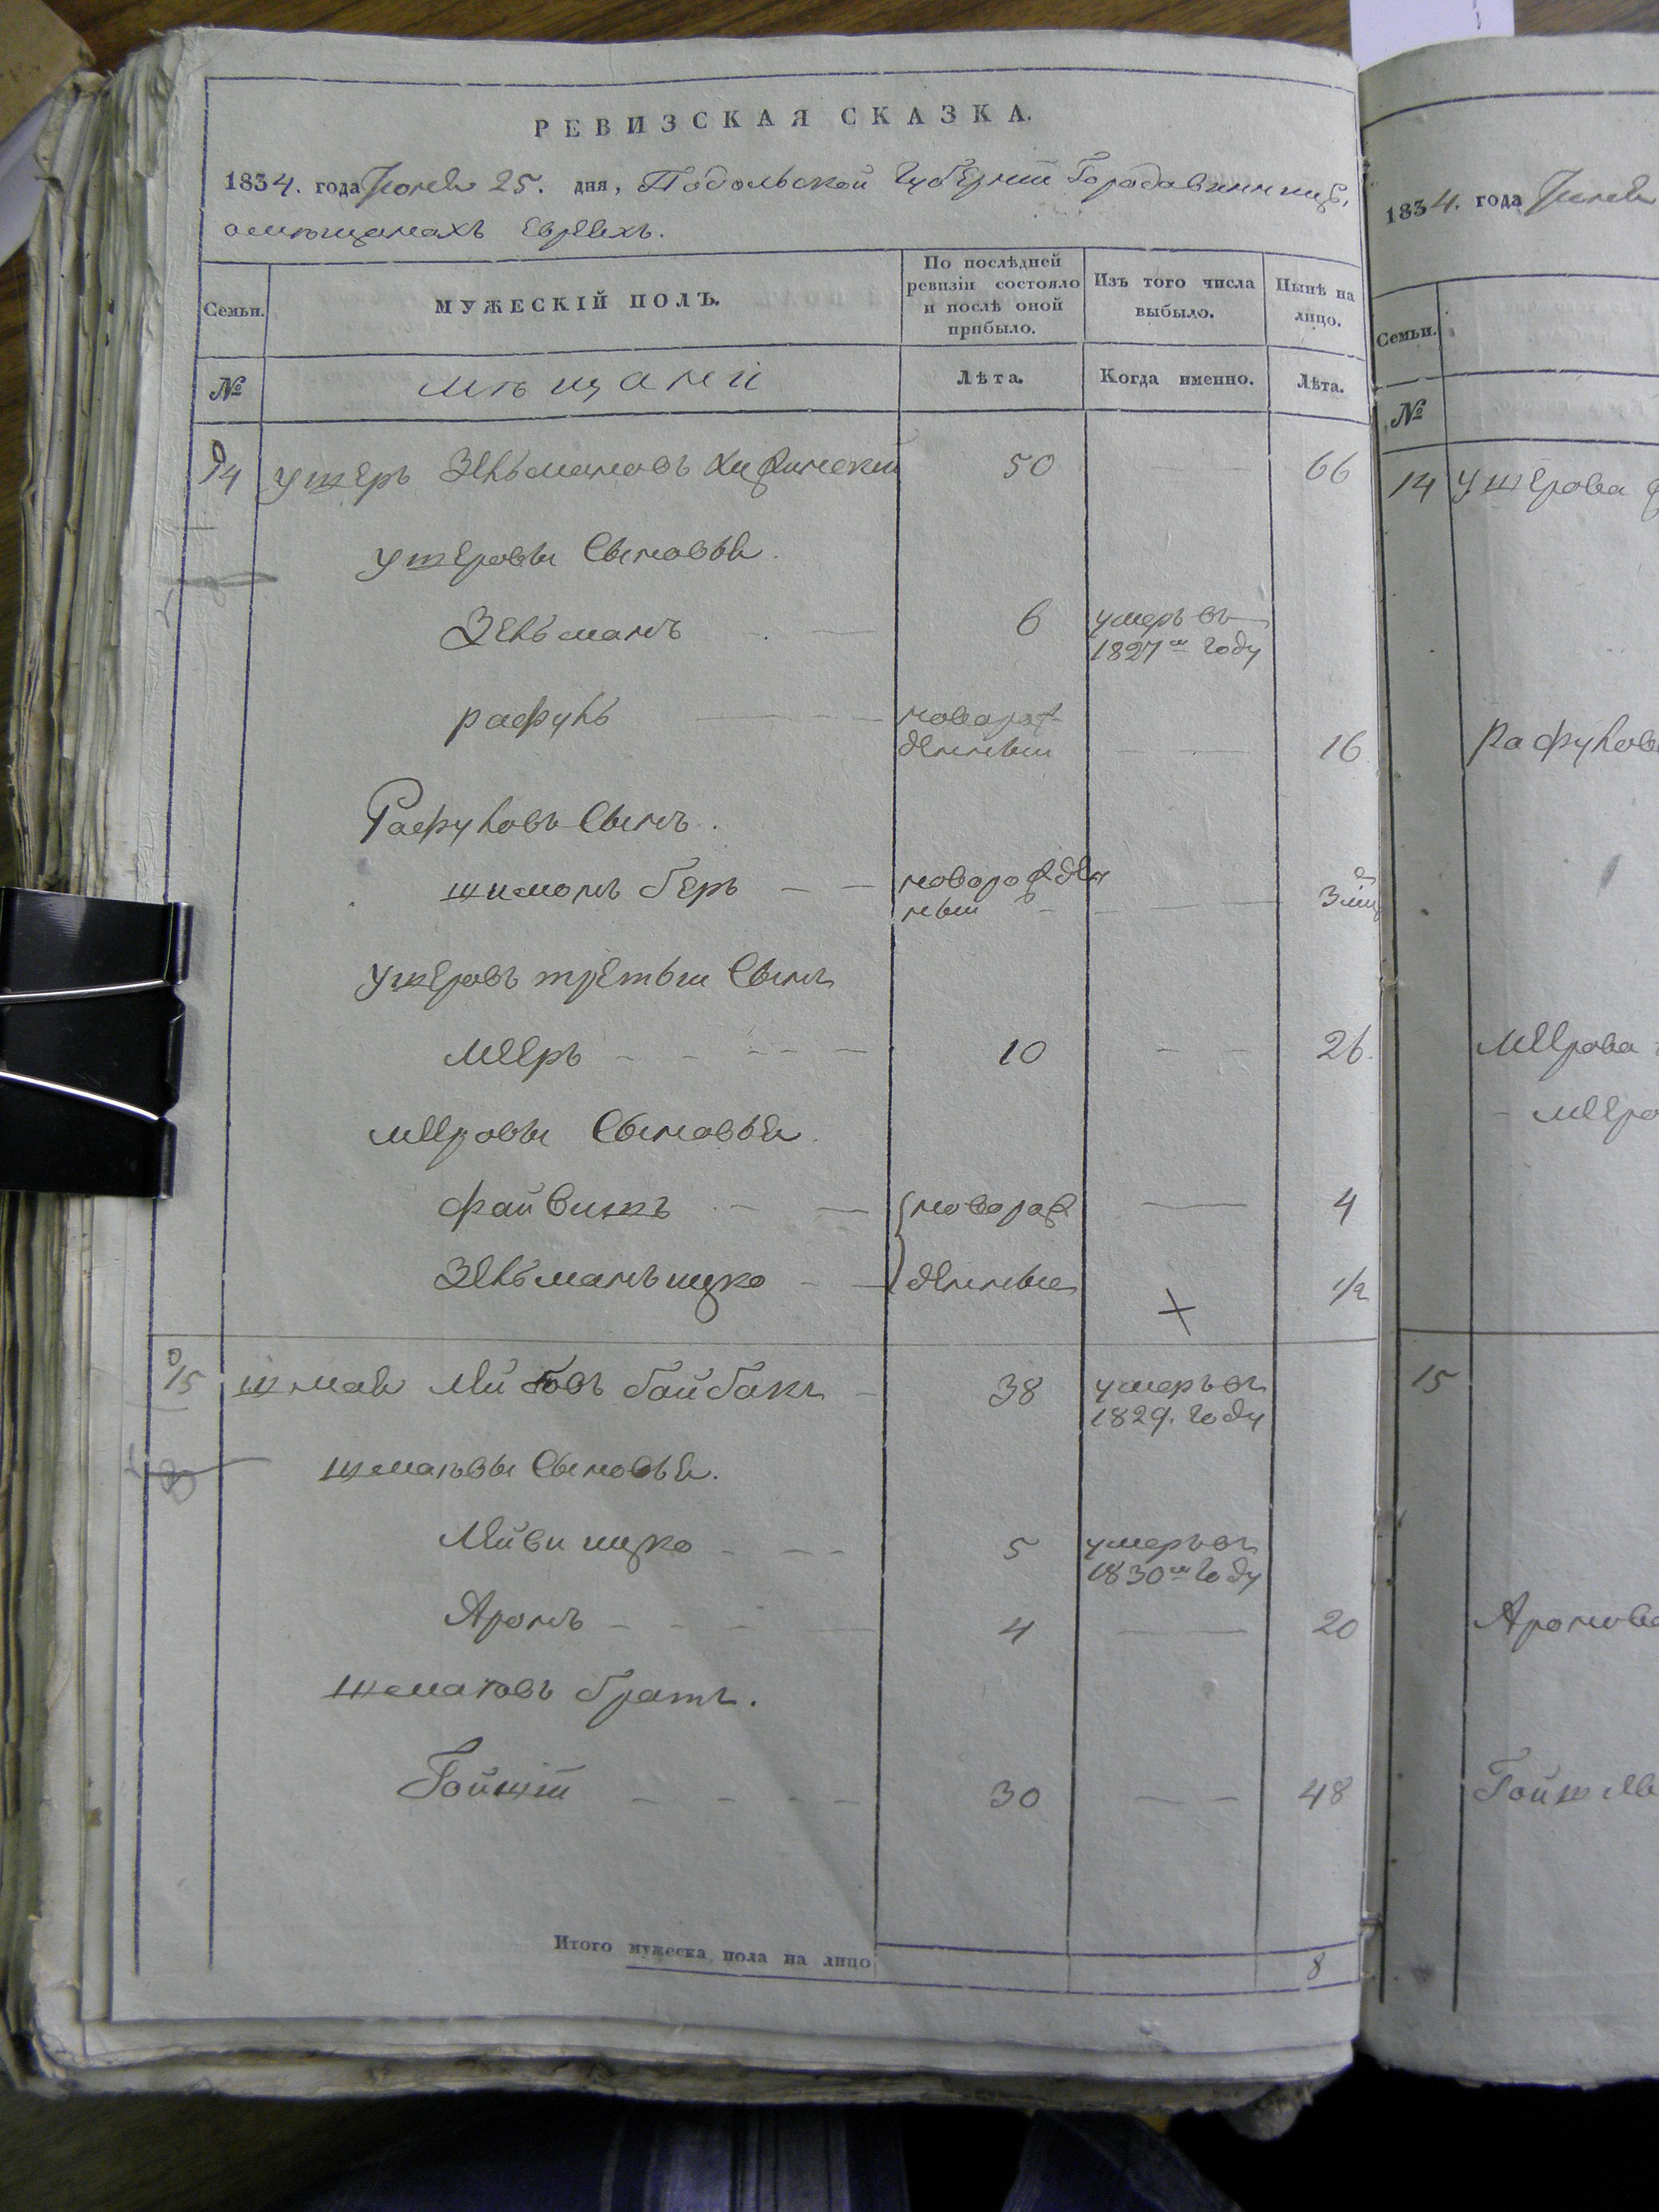 РЕВИЗСКАЯ СКАЗКА.
1834. года Июня 25. дня, Подольской Губерніи Города Винницы,
о мѣщанахъ Евреяхъ.
Семьи.
МУЖЕСКІЙ ПОЛЪ.
По послѣдней ревизіи состояло и послѣ оной прибыло.
Изъ того числа выбыло.
Нынѣ на лицо.
№
мѣщани
Лѣта.
Когда именно.
Лѣта.
14 Ушеръ Зельмановъ 50 — 66
Ушеровы Сыновья.
Зельманъ 6 умеръ въ
1827м году
Рафулъ — новорож
денный — 16
Рафуловъ Сынъ.
Шимонъ Беръ — новорожден
ный — 3 мц
Ушеровъ третьи Сынъ
Мееръ — 10 — 26.
Мееровы Сыновья.
Файвишъ — новорож — 4
Зельманъ Ицко — денные 1/2
15 Шмая Байбакъ — 38 умеръ въ
1829. году
Шмаевы Сыновья.
Лейви Ицко — 5 умеръ въ
1830м году
Аронъ — 4 — 20
Шмаевъ братъ.
Гойшія — 30 — 48
Итого мужеска пола на лицо 8
1834. года Июня
Семьи.
№
14 Ушерова
Рафулова
Меерова
Мееро
15
Аронова